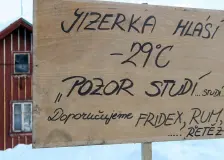 JIZERKA HLÁSÍ
-29°C
"POZOR STUDÍ.. STUDÍ
Doporučujeme FRIDEX, RUM,
....., ŘETĚZ